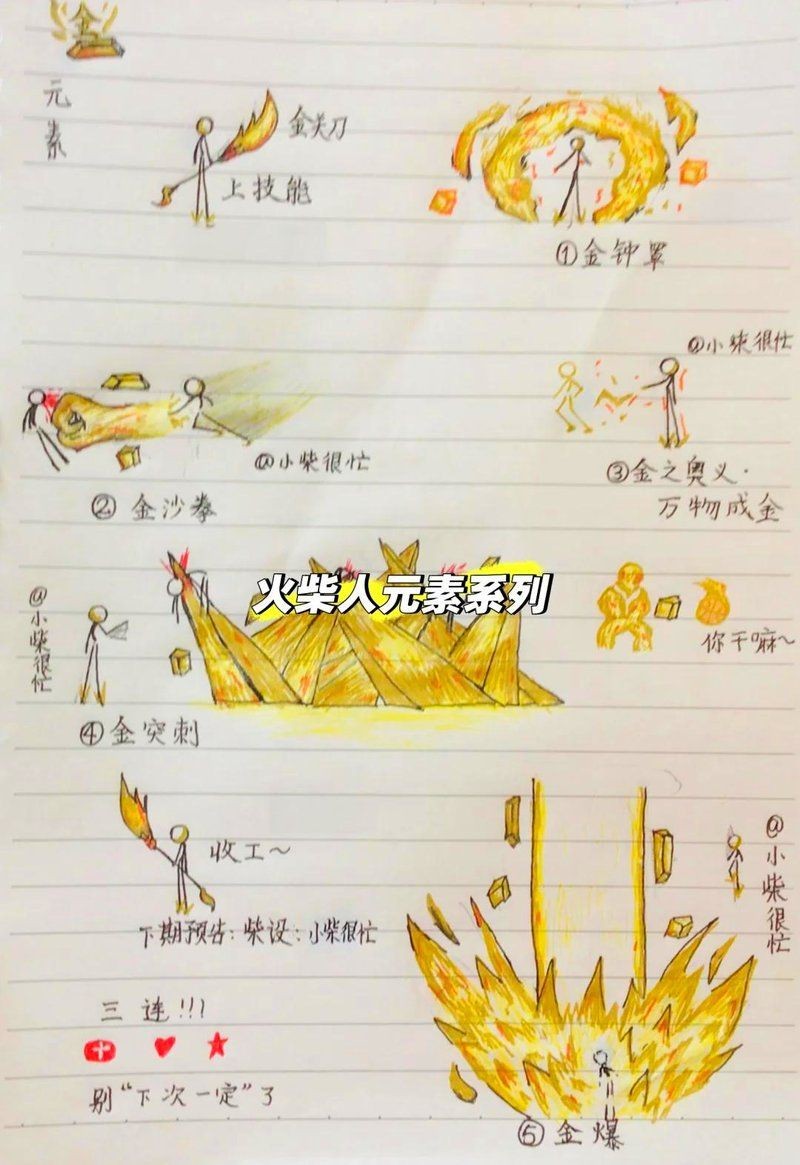 金
元
素
金关刀
上技能
①金钟罩
@小柴很忙
@小柴很忙
②金沙拳
③金之奥义·
万物成金
火柴人元素系列
@小柴很忙
你干嘛~
④金突刺
收工~
@小柴很忙
下期预告:柴设:小柴很忙
三连!!!
别“下次一定”了
⑤金爆